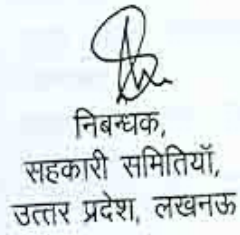 निबन्धक,
सहकारी समितियॉ,
उत्तर प्रदेश, लखनऊ